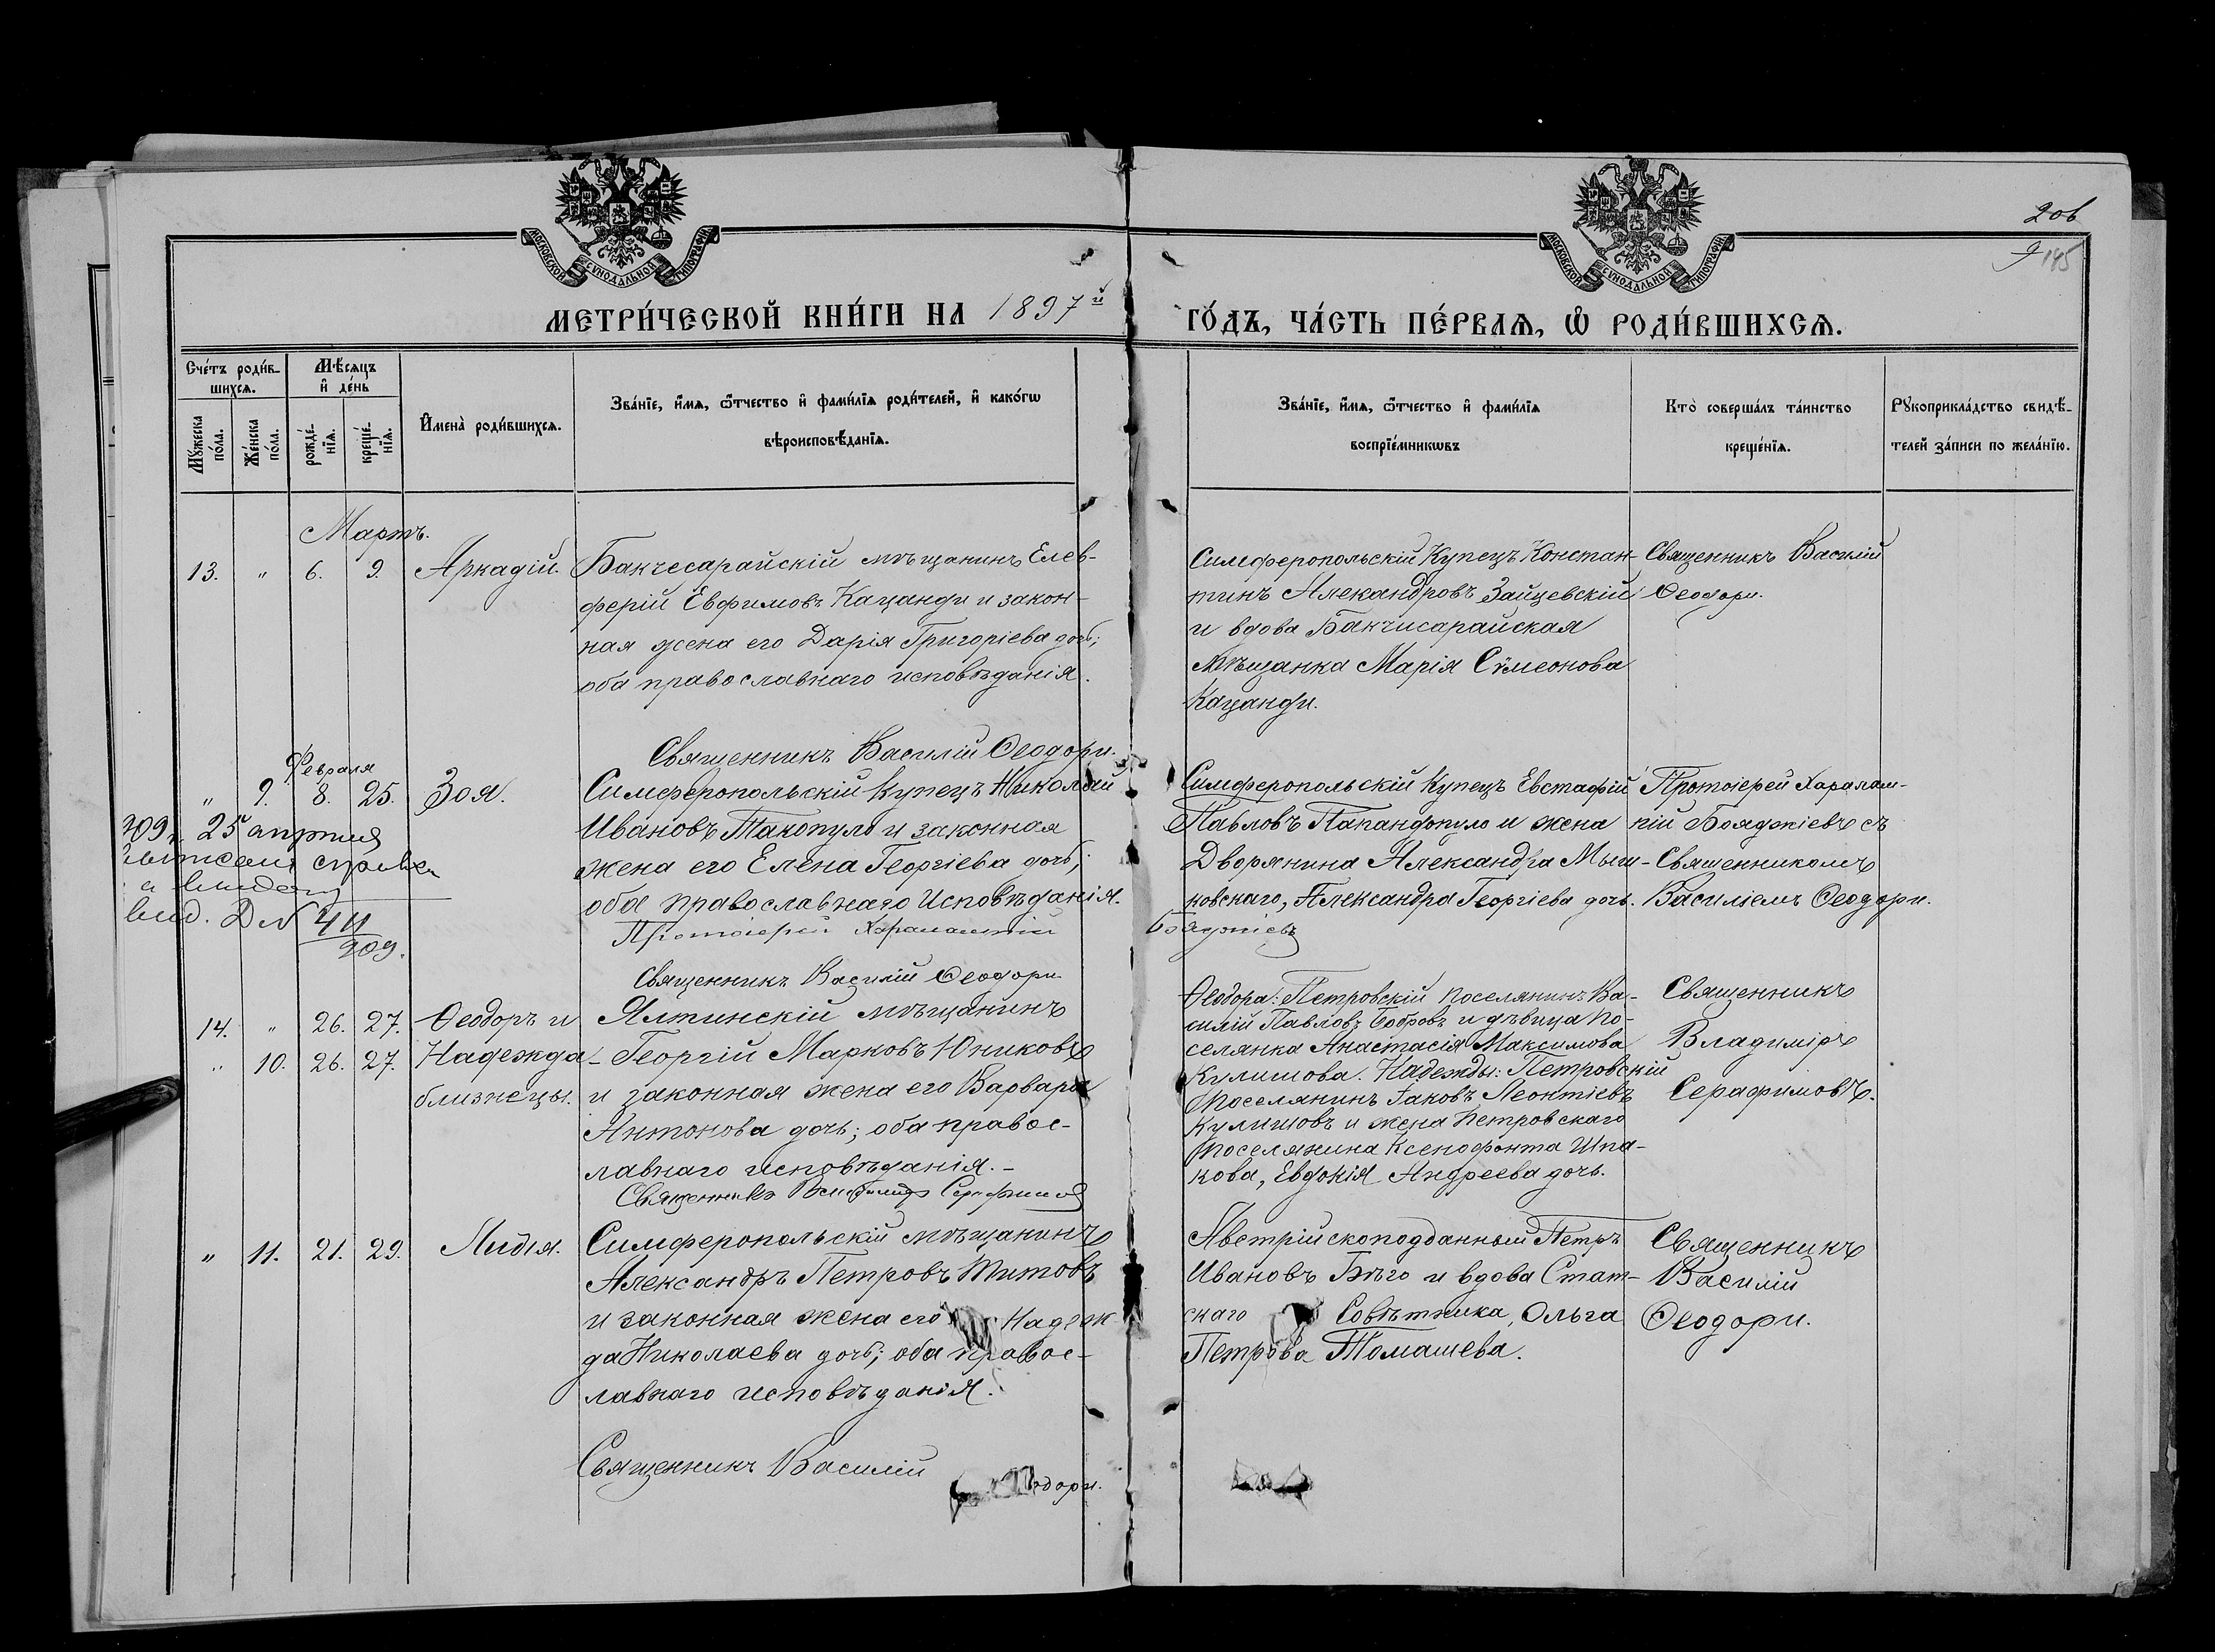 206
9 145
МОСКОВСКОЙ СѴНОДАЛЬНОЙ ТИПОГРАФІИ
МОСКОВСКОЙ СѴНОДАЛЬНОЙ ТИПОГРАФІИ
МЕТРИ́ЧЕСКОЙ КНИ́ГИ НА 1897й ГО́ДЪ, ЧА́СТЬ ПЕ́РВАѦ, Ѡ҆ РОДИ́ВШИХСѦ.
Сче́тъ роди́в-
шихсѧ.
Мꙋ́жеска по́ла.
Же́нска по́ла.
Мѣ́сѧцъ
и҆ де́нь
рожде́-
нїѧ.
креще́-
нїѧ.
И҆мена̀ роди́вшихсѧ.
Зва́нїе, и҆́мѧ, ѻ҆́тчество и҆ фами́лїѧ роди́телей, и҆ како́гѡ
вѣроисповѣ́данїѧ.
Зва́нїе, и҆́мѧ, ѻ҆́тчество и҆ фами́лїѧ
воспрїе́мникѡвъ
Кто̀ соверша́лъ та́инство
креще́нїѧ.
Рꙋкоприкла́дство свидѣ́-
телей за́писи по жела́нїю.
Мартъ.
13. " 6. 9. Аркадій.
Бахчесарайскій мѣщанинъ Елев-
ферій Евфимовъ Кацанди и закон-
ная жена его Дарія Григоріева дочь;
оба православнаго исповѣданія.
Священникъ Василій Ѳеодори.
Симферопольскій Купецъ Констан-
тинъ Алекандровъ Зайцевскій
и вдова Бахчисарайская
мѣщанка Марія Сѵмеонова
Кацанди.
Священникъ Василій
Ѳеодори.
Февраля
" 9. 8. 25. Зоя.
Симферопольскій Купецъ Николай
Ивановъ Такопуло и законная
жена его Елена Георгіева дочь;
обое православнаго Исповѣданія.
Протоіерей Харалампій Бояджіевъ
Священникъ Василій Ѳеодори
Симферопольскій Купецъ Евстафій
Павловъ Папандопуло и жена
Дворянина Александра Мыш-
ковскаго, Александра Георгіева дочь.
Протоіерей Харалам-
пій Бояджіевъ съ
Священникомъ
Василіемъ Ѳеодори.
309 25 апрѣля
справка
и выдану
411
909.
14. " 26. 27. Ѳеодоръ и
" 10. 26. 27. Надежда
близнецы.
Ялтинскій мѣщанинъ
Георгій Марковъ Юниковъ
и законная жена его Варвара
Антонова дочь; оба правос-
лавнаго исповѣданія.-
Священникъ Владимиръ Серафимовъ
Ѳеодора: Петровскій поселянинъ Ва-
силій Павловъ Бобровъ и дѣвица по-
селянка Анастасія Максимова
Кулишова. Надежды: Петровскій
поселянинъ Іаковъ Леонтіевъ
Кулишовъ и жена Петровскаго
поселянина Ксенофонта Шпа-
кова, Евдокія Андреева дочь.
Священникъ
Владиміръ
Серафимовъ.
" 11. 21. 29. Лидія.
Симферопольскій мѣщанинъ
Александръ Петровъ Титовъ
и законная жена его Надеж
да Николаева дочь; оба правос-
лавнаго исповѣданія.
Священникъ Василій
Ѳеодори.
Австрійскоподданный Петръ
Ивановъ Бѣго и вдова Стат-
скаго Совѣтника, Ольга
Петрова Томашева.
Священникъ
Василій
Ѳеодори.